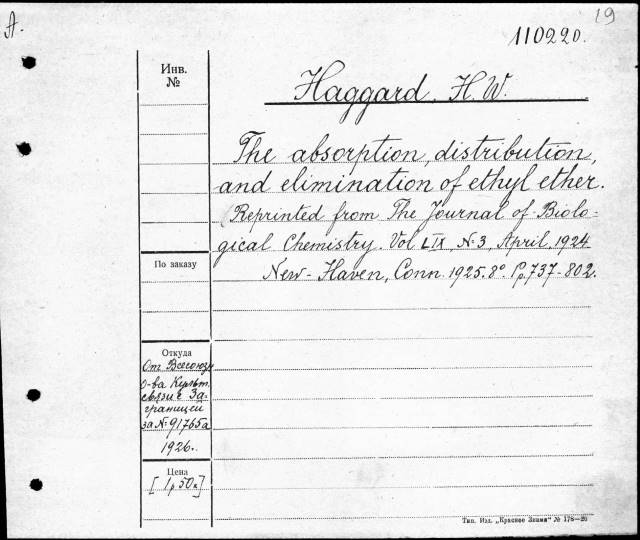 19
А.
110220.
Инв.
№
Haggard, H. W.
The absorption, distribution,
and elimination of ethyl ether.
(Reprinted from The Journal of Biolo-
gical Chemistry. Vol LIX, N:3, April, 1924
New-Haven, Conn. 1925. 8º. Pp. 737-802.
По заказу
Откуда
От Всесоюзн
о-ва Культ.
связи с За-
границей
за № 91765а
1926.
Цена
[1р 50к]
Тип. Изд. „Красное Знамя" № 178—26